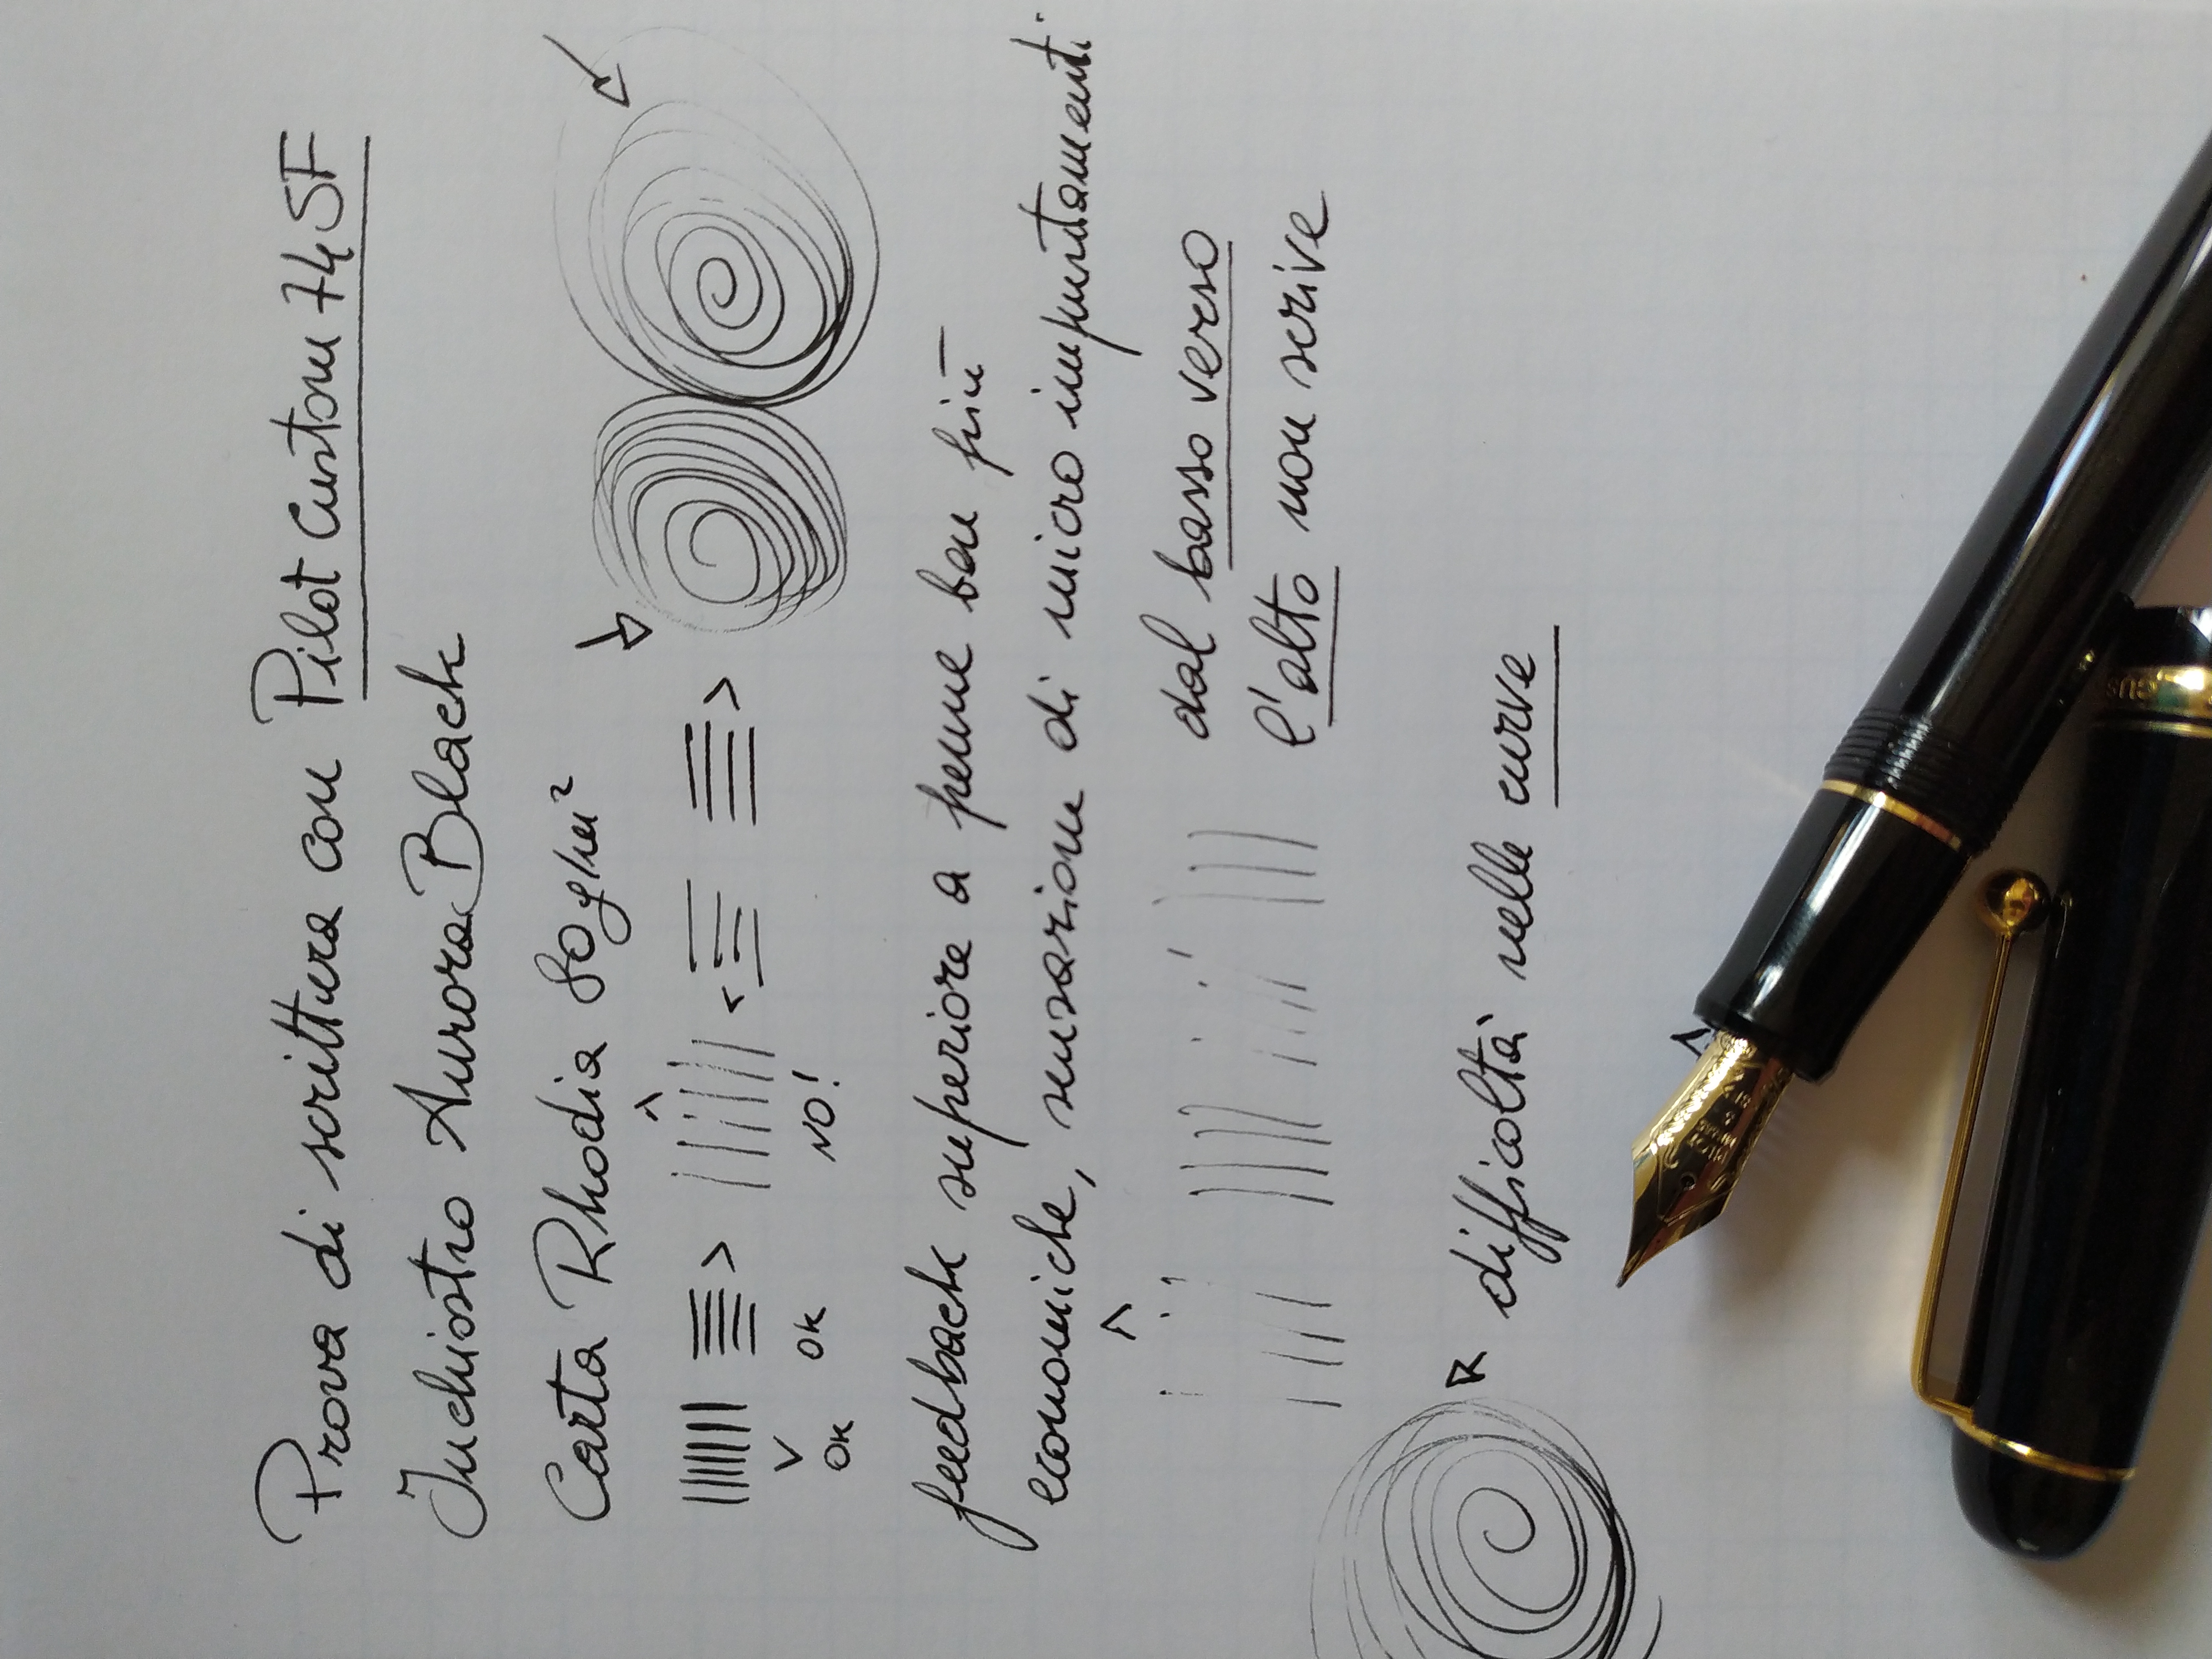 Prova di scrittura con Pilot Custom 74 SF
Inchiostro Aurora Black
Carta Rhodia 80 g/m²
OK OK NO!
feedback superiore a penne ben più
economiche, sensazione di micro impuntamenti
dal basso verso
l'alto non scrive
difficoltà nelle curve